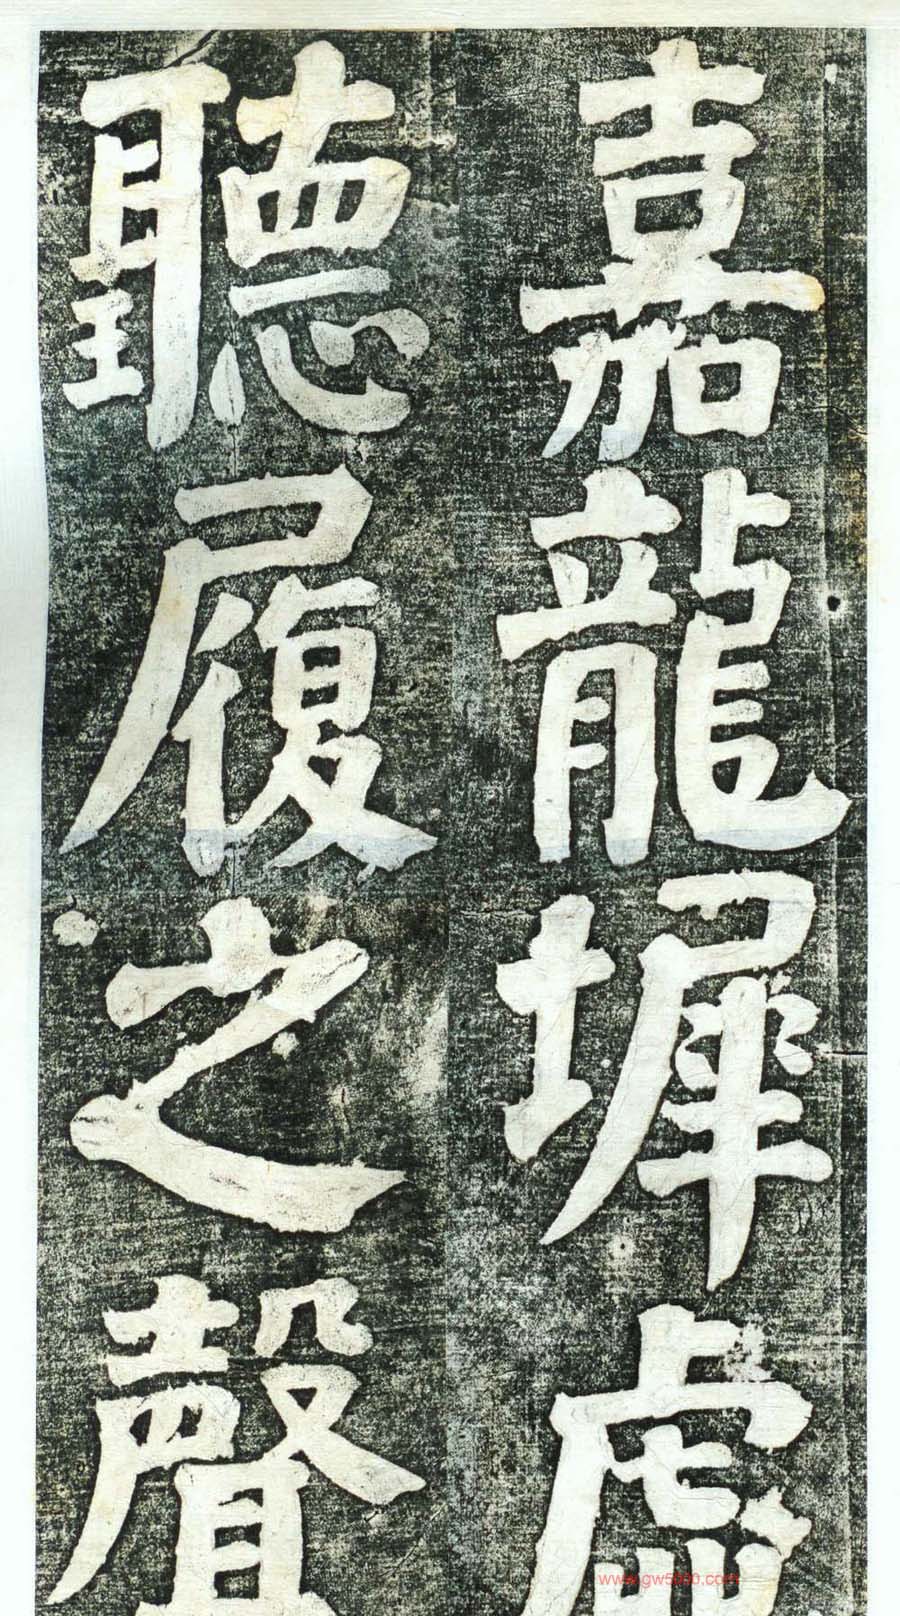 嘉龍墀虛
聽履之聲
www.gw5000.com